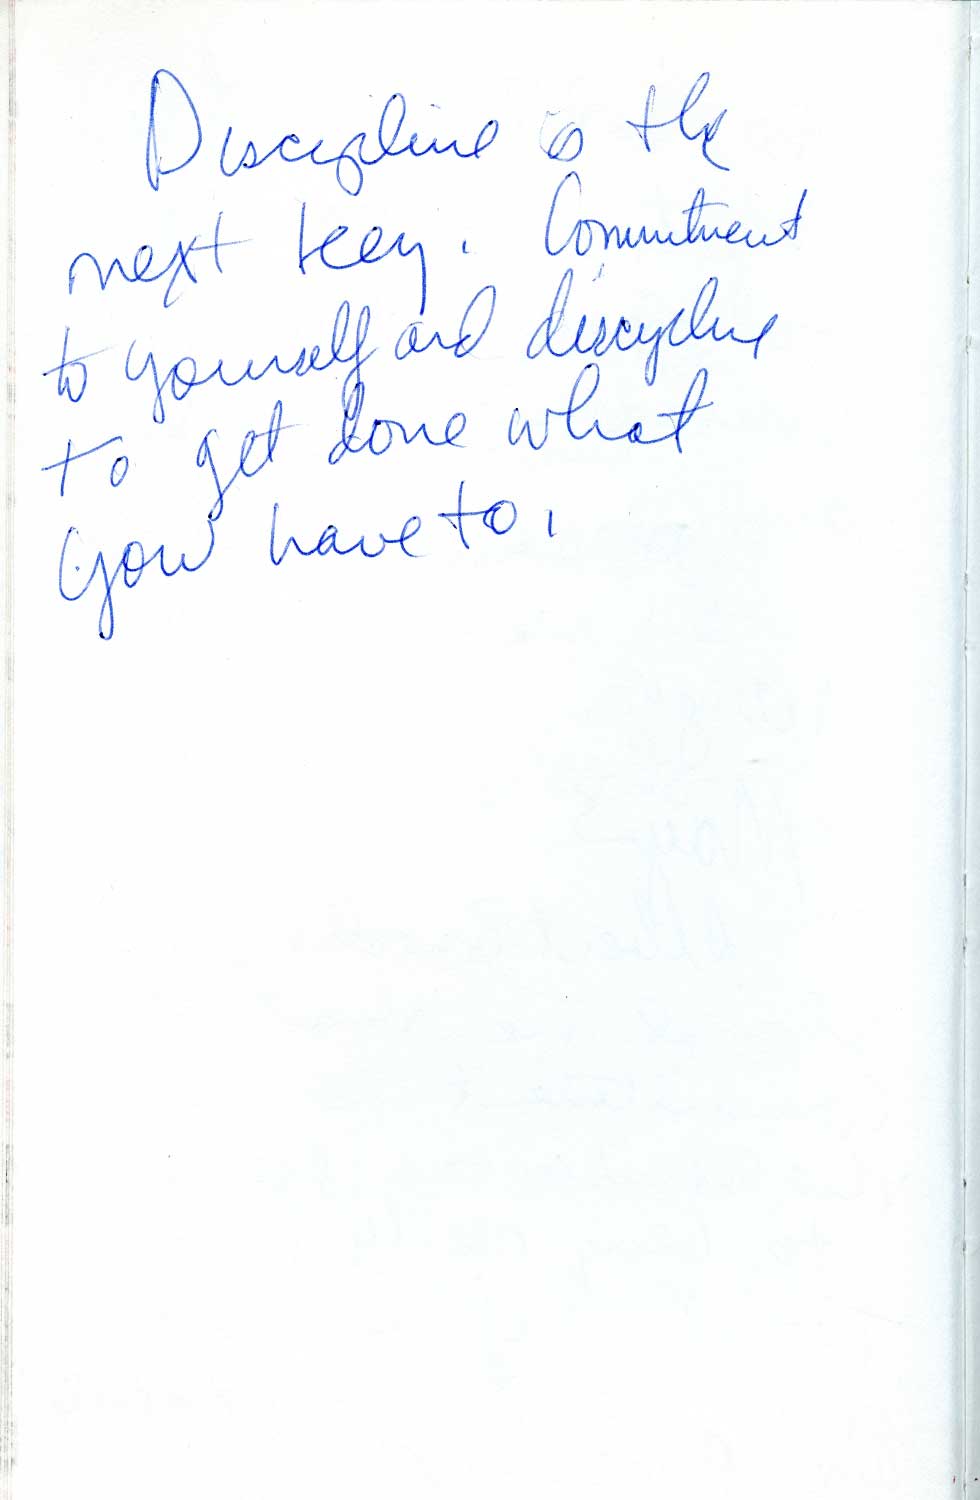 Discipline is the
next key. Commitment
to yourself and discipline
to get done what
you have to.